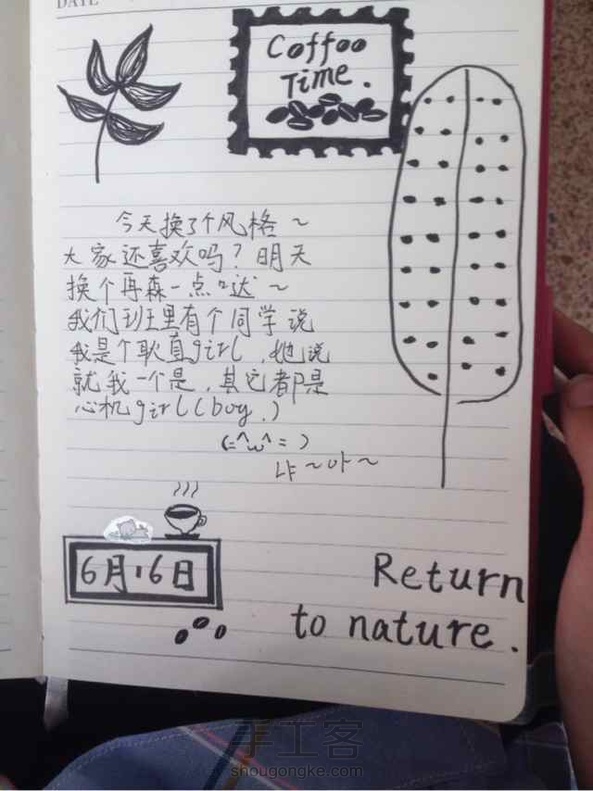 DATE
Coffoo
Time.
今天换了个风格~
大家还喜欢吗？明天
换个再森一点哒~
我们班里有个同学说
我是个耿直girl，她说
就我一个是，其它都是
心机girl(boy.)
(=^ω^=)
냐~아~
6月·16日
Return
to nature.
手工客
shougongke.com